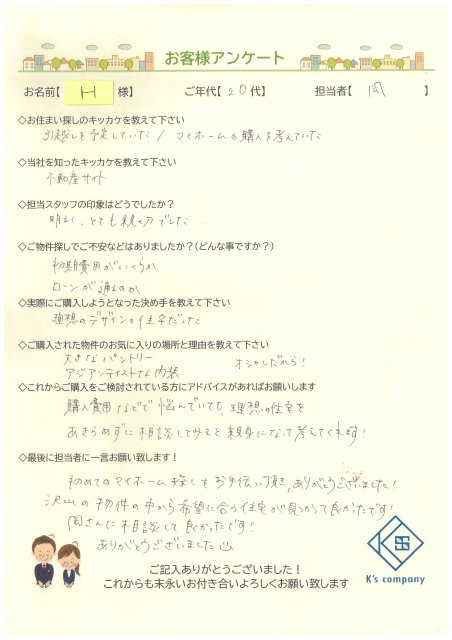 お客様アンケート
お名前【 H 様】 ご年代【 20代】 担当者【 岡 】
◇お住まい探しのキッカケを教えて下さい
引越しを予定していた / マイホームの購入を考えていた
◇当社を知ったキッカケを教えて下さい
不動産サイト
◇担当スタッフの印象はどうでしたか？
明るく、とても親切でした
◇ご物件探しでご不安などはありましたか？(どんな事ですか？)
初期費用がいくらか
ローンが通るのか
◇実際にご購入しようとなった決め手を教えて下さい
理想のデザインの住宅だった
◇ご購入された物件のお気に入りの場所と理由を教えて下さい
大きなパントリー
アジアンテイストな内装 オシャレだから!
◇これからご購入をご検討されている方にアドバイスがあればお願いします
購入費用などで悩んでいても理想の住宅を
あきらめずに相談してみると親身になって考えてくれます!
◇最後に担当者に一言お願い致します！
初めてのマイホーム探しもお手伝い頂き、ありがとうございました!
沢山の物件の中から希望に合う住宅が見つかって良かったです!
岡さんに相談して良かったです!
ありがとうございました
ご記入ありがとうございました！
これからも末永いお付き合いよろしくお願い致します
K's company